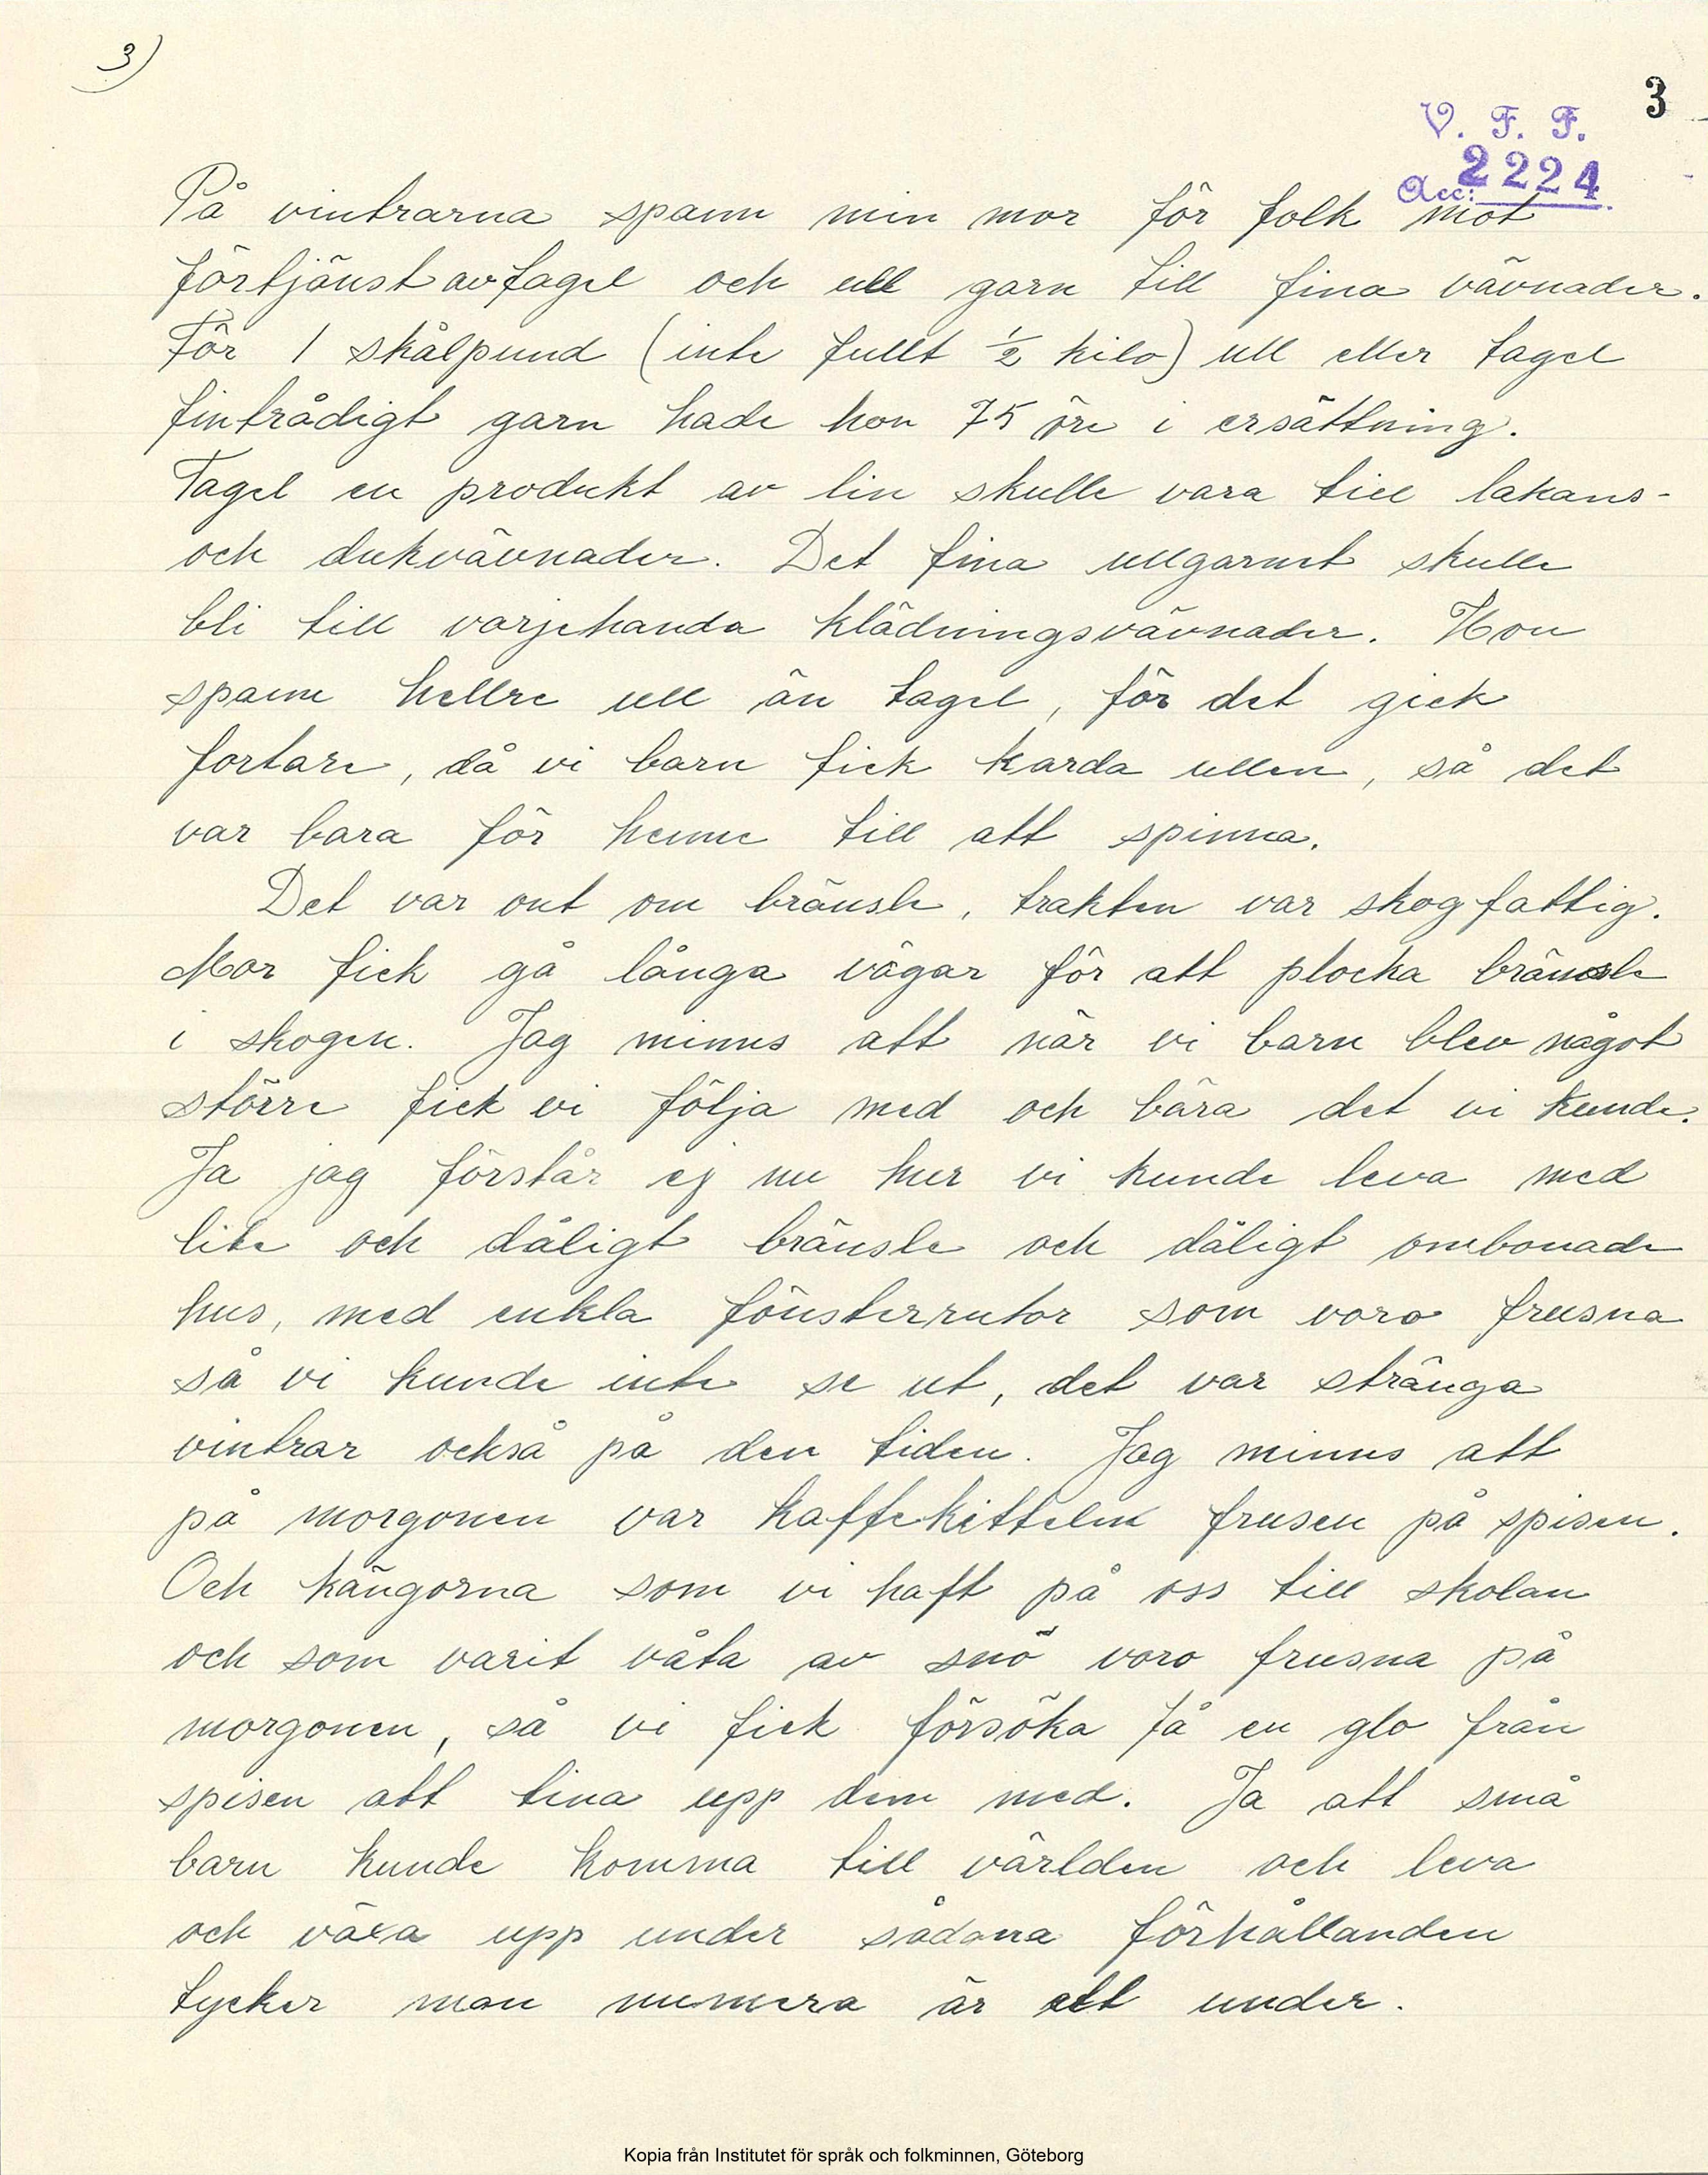 3)
3
V. F. F.
Acc: 2224
På vintrarna spann min mor för folk mot
förtjänst av tagel och ull garn till fina vävnader.
För 1 skålpund (inte fullt ½ kilo) ull eller tagel
fintrådigt garn hade hon 75 öre i ersättning.
Tagel en produkt av lin skulle vara till lakans-
och dukvävnader. Det fina ullgarnet skulle
bli till varjehanda klädningsvävnader. Hon
spann hellre ull än tagel, för det gick
fortare, då vi barn fick karda ullen, så det
var bara för henne till att spinna.
Det var ont om bränsle, trakten var skogfattig.
Mor fick gå långa vägar för att plocka bränsle
i skogen. Jag minns att när vi barn blev något
större fick vi följa med och bära det vi kunde.
Ja jag förstår ej nu hur vi kunde leva med
lite och dåligt bränsle och dåligt ombonade
hus, med enkla fönsterrutor som voro frusna
så vi kunde inte se ut, det var stränga
vintrar också på den tiden. Jag minns att
på morgonen var kaffekitteln frusen på spisen.
Och kängorna som vi haft på oss till skolan
och som varit våta av snö voro frusna på
morgonen, så vi fick försöka få en glo från
spisen att tina upp dem med. Ja att små
barn kunde komma till världen och leva
och växa upp under sådana förhållanden
tycker man numera är ett under.
Kopia från Institutet för språk och folkminnen, Göteborg